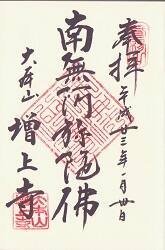 奉拝 平成廿三年一月廿日
南無阿弥陀佛
大本山 増上寺